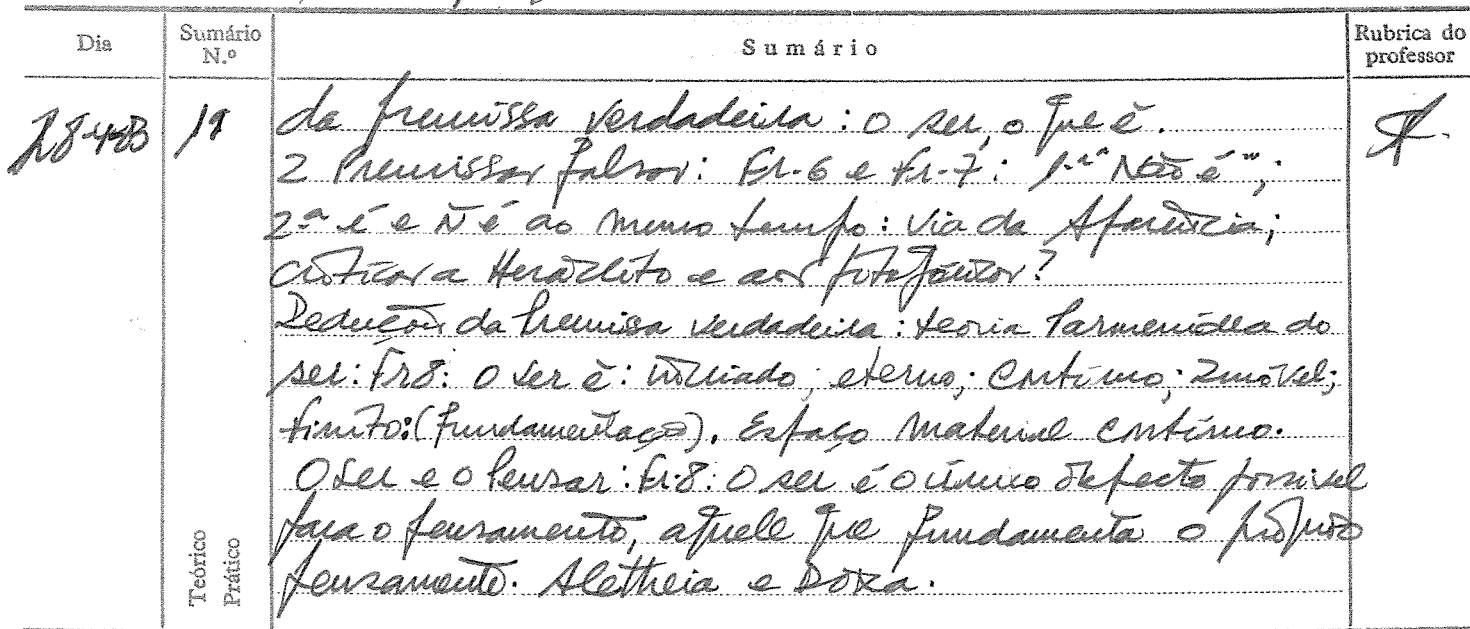 Dia Sumário N.º Sumário Rubrica do professor
28-4-83 19 da premissa verdadeira: o ser, o que é.
2 Premissas falsas: Fr-6 e Fr-7: 1.ª "Não é";
2ª é e Ñ é ao mesmo tempo: via da Aparência;
críticas a Heraclito e aos pitagóricos?
Dedução da Premissa verdadeira: teoria Parmenídea do
ser: Fr8: O ser é: incriado; eterno; contínuo; Imóvel;
finito: (fundamentação). Espaço material contínuo.
O ser e o Pensar: Fr.8: O ser é o único objecto possível
para o pensamento, aquele que fundamenta o próprio
pensamento. Aletheia e Doxa.
Teórico
Prático